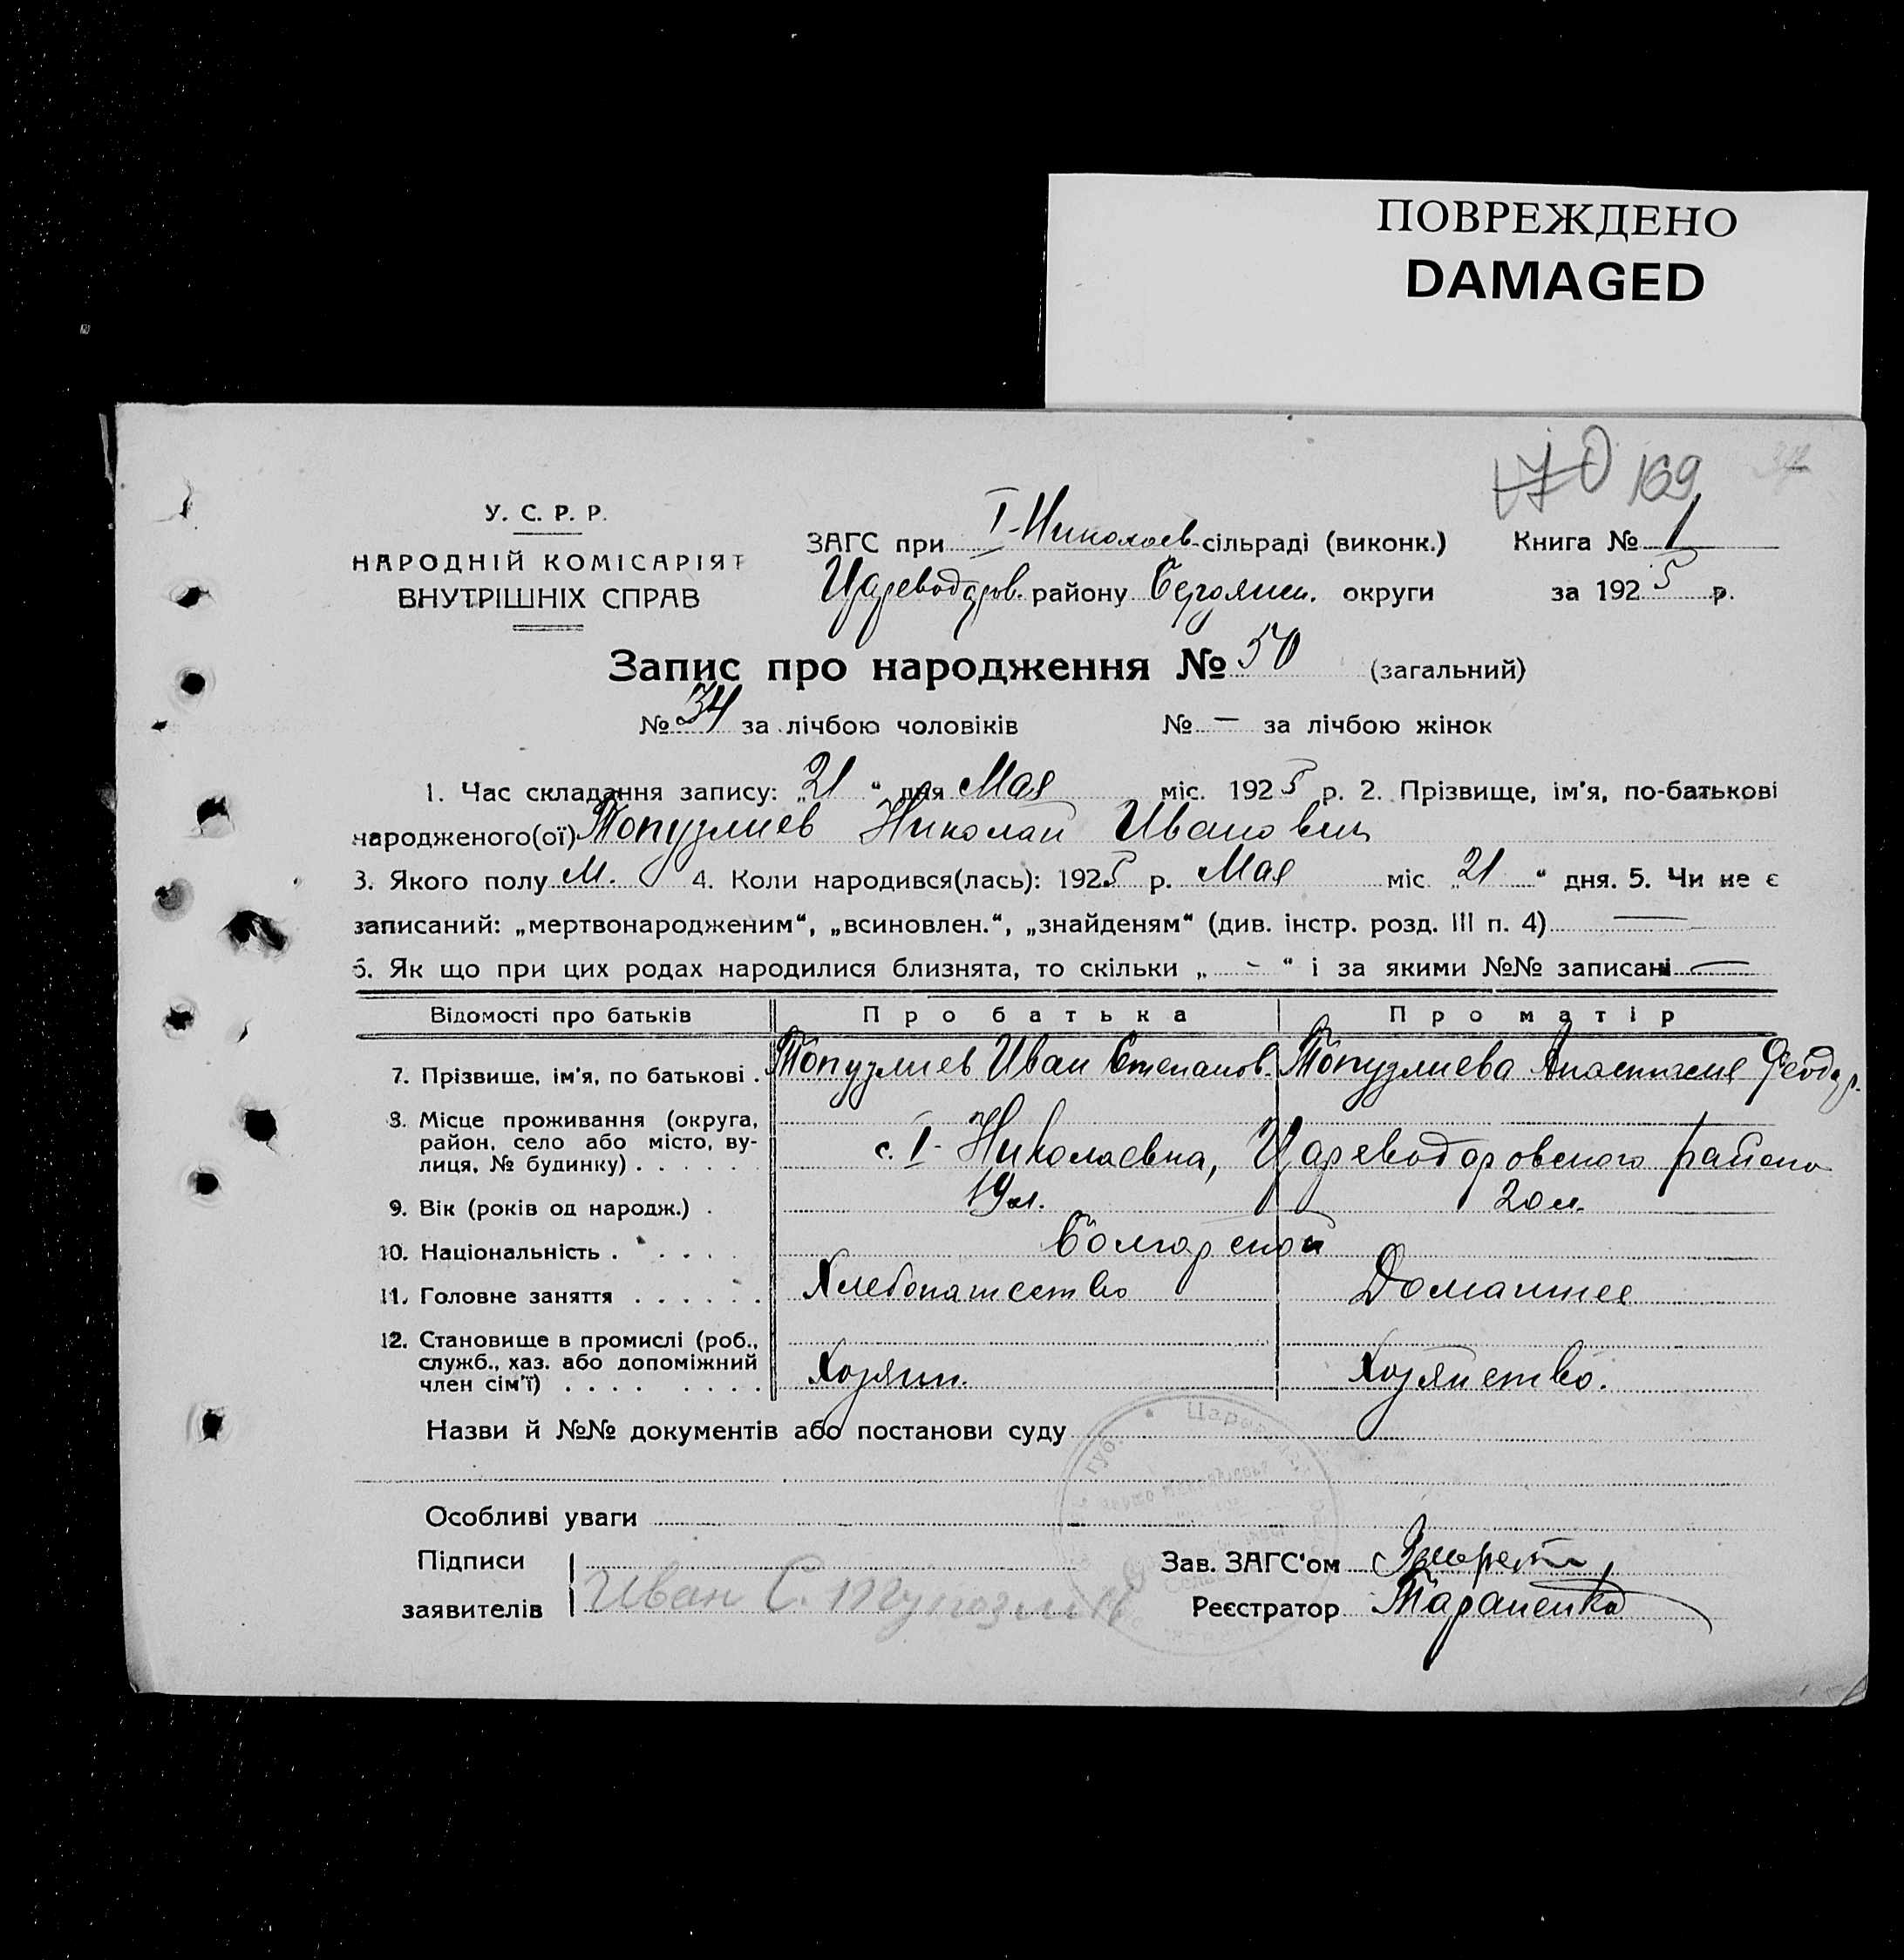 ПОВРЕЖДЕНО
DAMAGED
170 169
У. С. Р. Р.
НАРОДНІЙ КОМІСАРІЯТ
ВНУТРІШНІХ СПРАВ
ЗАГС при I-Николаев-сільраді (виконк.) Книга № 1
Цареводаров. району Бердянск. округи за 1925 р.
Запис про народження № 50 (загальний)
№ 34 за лічбою чоловіків № — за лічбою жінок
1. Час складання запису: „21“ дня Мая міс. 1925 р. 2. Прізвище, ім'я, по-батькові
народженого(ої) Топузлиев Николай Иванович
3. Якого полу М. 4. Коли народився(лась): 1925 р. Мая міс. „21“ дня. 5. Чи не є
записаний: „мертвонародженим“, „всиновлен.“, „знайденям“ (див. інстр. розд. III п. 4) —
6. Як що при цих родах народилися близнята, то скільки „ - “ і за якими №№ записані —
Відомості про батьків Про батька Про матір
7. Прізвище, ім'я, по батькові . Топузлиев Иван Степанов. Топузлиева Анастасия Феодор.
8. Місце проживання (округа,
район, село або місто, ву-
лиця, № будинку) . . . . . . с. I- Николаевка, Цареводаровского района
9. Вік (років од народж.) . 19 л. 20 л.
10. Національність . . . . . Болгарской
11. Головне заняття . . . . . . Хлебопашество Домашнее
12. Становище в промислі (роб.,
служб., хаз. або допоміжний
член сім'ї) . . . . . . . . Хозяин. Хозяйство.
Назви й №№ документів або постанови суду
Особливі уваги
Підписи
заявителів Иван С. Тупозлив
Зав. ЗАГС'ом
Реєстратор Тараненко